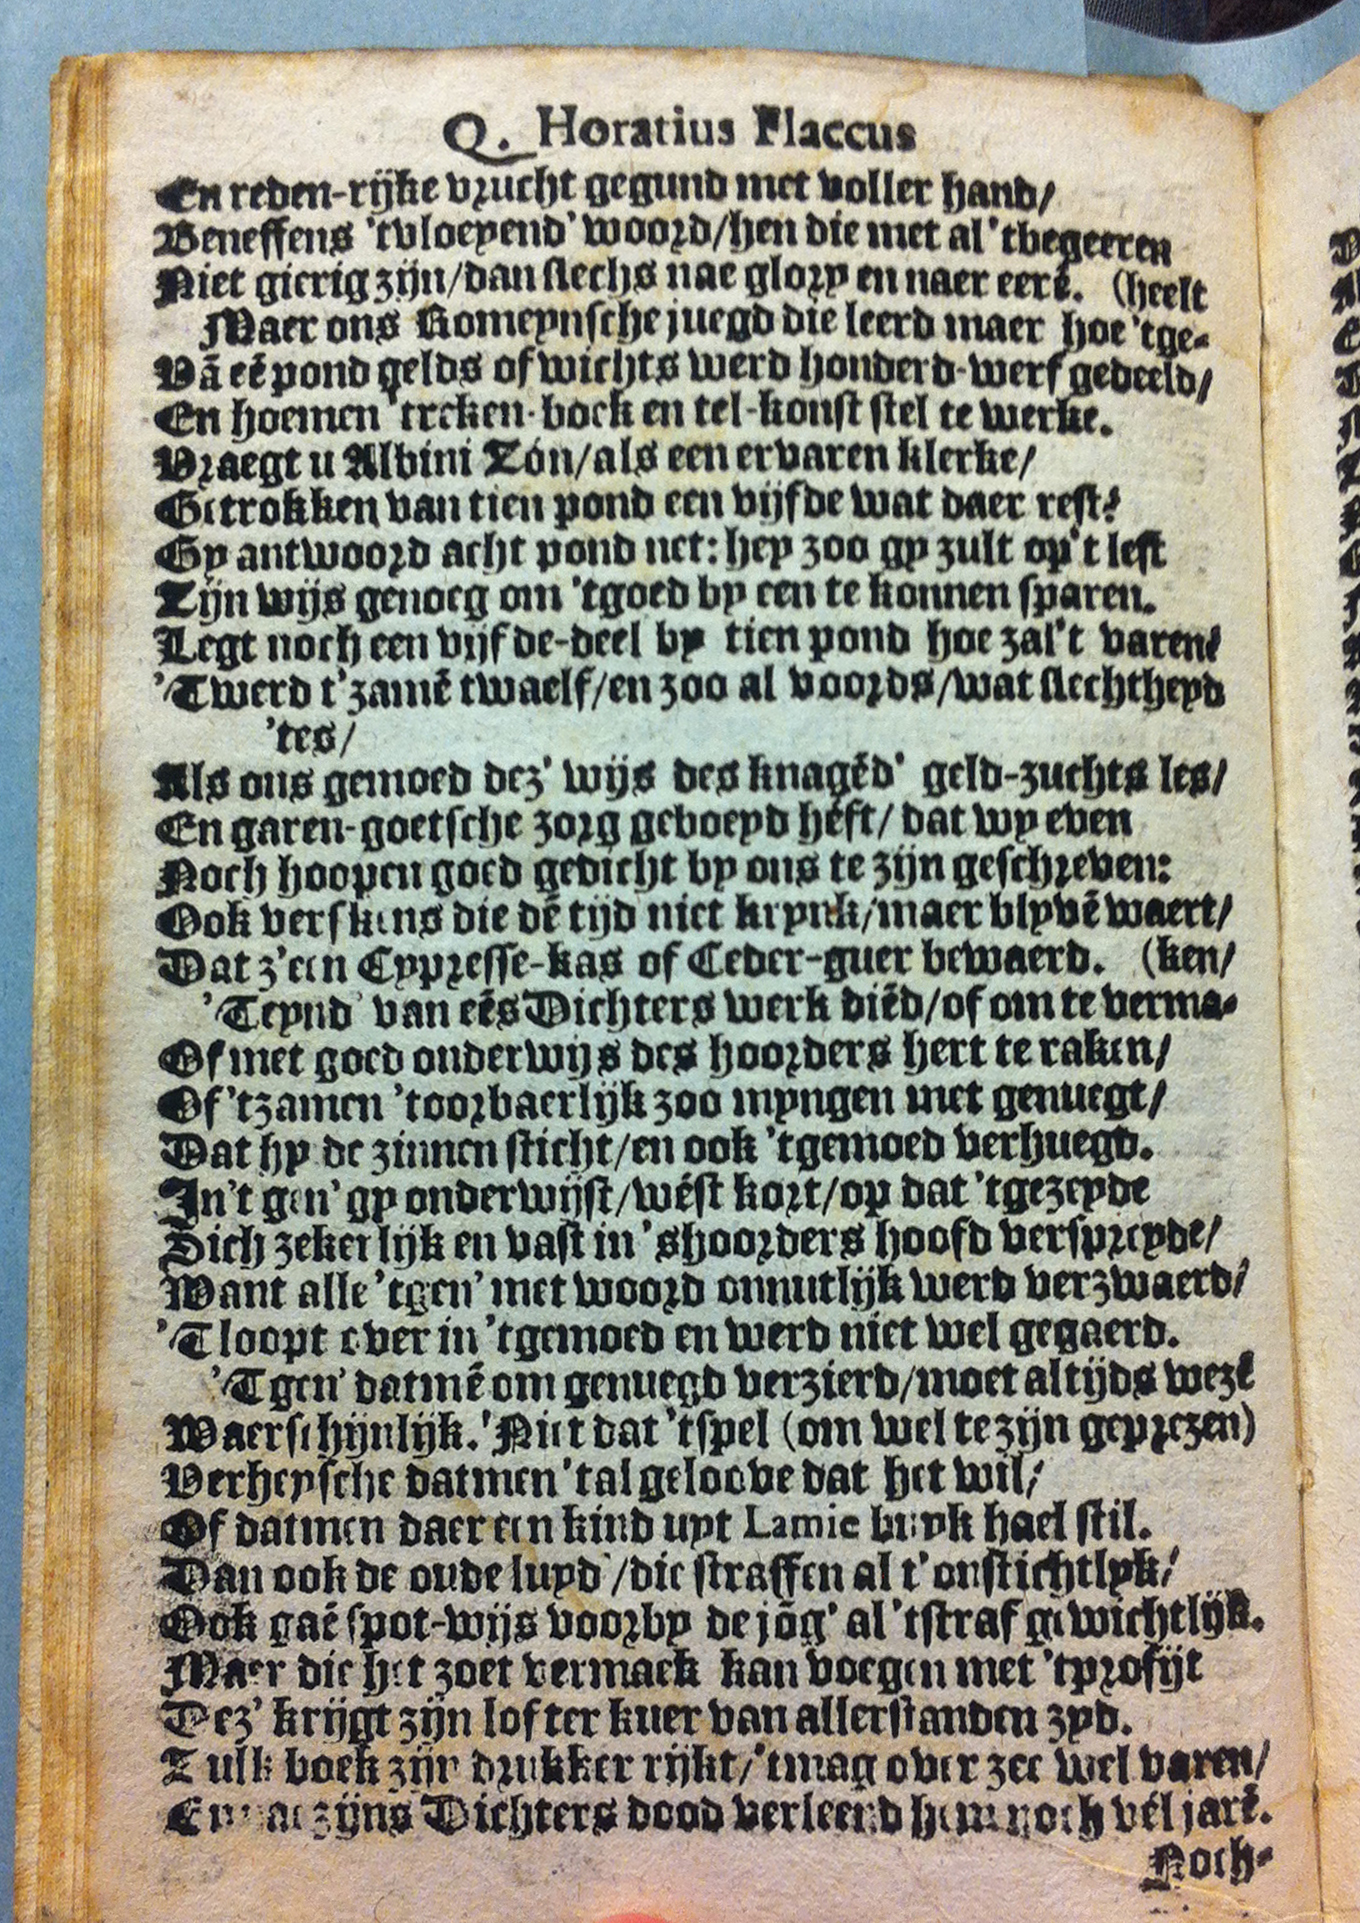 Q. Horatius Flaccus
En reden-rijke vrucht gegund met voller hand/
Beneffens 'tvloeyend' woord/hen die met al 'tbegeeren
Niet gierig zijn/dan slechs nae glory en naer eerẽ. (heelt
Maer ons Romeynsche juegd die leerd maer hoe 'tge-
Vã eẽ pond gelds of wichts werd honderd-werf gedeeld/
En hoemen 'treken-bock en tel-konst stel te werke.
Vraegt u Albini Zón/als een ervaren klerke/
Getrokken van tien pond een vijfde wat daer rest?
Gy antwoord acht pond net: hey zoo gy zult op't lest
Zijn wijs genoeg om 'tgoed by een te konnen sparen.
Legt noch een vijfde-deel by tien pond hoe zal't varen?
'Twerd t'zamẽ twaelf/en zoo al voords/wat slechtheyd
'tes/
Als ons gemoed dez' wijs des knagẽd' geld-zuchts les/
En garen-goetsche zorg geboeyd héft/ dat wy even
Noch hoopen goed gedicht by ons te zijn geschreven:
Ook verskens die dẽ tijd niet krynk/maer blyvẽ waert/
Dat z'een Cypresse-kas of Ceder-guer bewaerd. (ken/
'Teynd' van eẽs Dichters werk diẽd/of om te verma-
Of met goed onderwijs des hoorders hert te raken/
Of 'tzamen 'toorbaerlijk zoo myngen met genuegt/
Dat hy de zinnen sticht/en ook 'tgemoed verhuegd.
In't gen' gy onderwijst/wést kort/op dat 'tgezeyde
Dich zekerlijk en vast in 'shoorders hoofd verspreyde/
Want alle 'tgen' met woord onnutlijk werd verzwaerd/
'Tloopt over in 'tgemoed en werd niet wel gegaerd.
'Tgen' datmẽ om genuegd verzierd/moet altijds wezẽ
Waerschijnlijk. Niet dat 'tspel (om wel te zijn geprezen)
Verheysche datmen 'tal geloove dat het wil/
Of datmen daer een kind uyt Lamie buyk hael stil.
Dan ook de oude luyd'/die straffen al t'onstichtlyk/
Ook gaẽ spot-wijs voorby de jõg' al 'tstraf gewichtlijk.
Maer die het zoet vermaek kan voegen met 'tprofijt
Dez' krijgt zijn lof ter kuer van allerstanden zyd.
Zulk boek zijn drukker rijkt/'tmag over zee wel varen/
En nae zijns Dichters dood verleend hem noch vél jarẽ.
Noch-